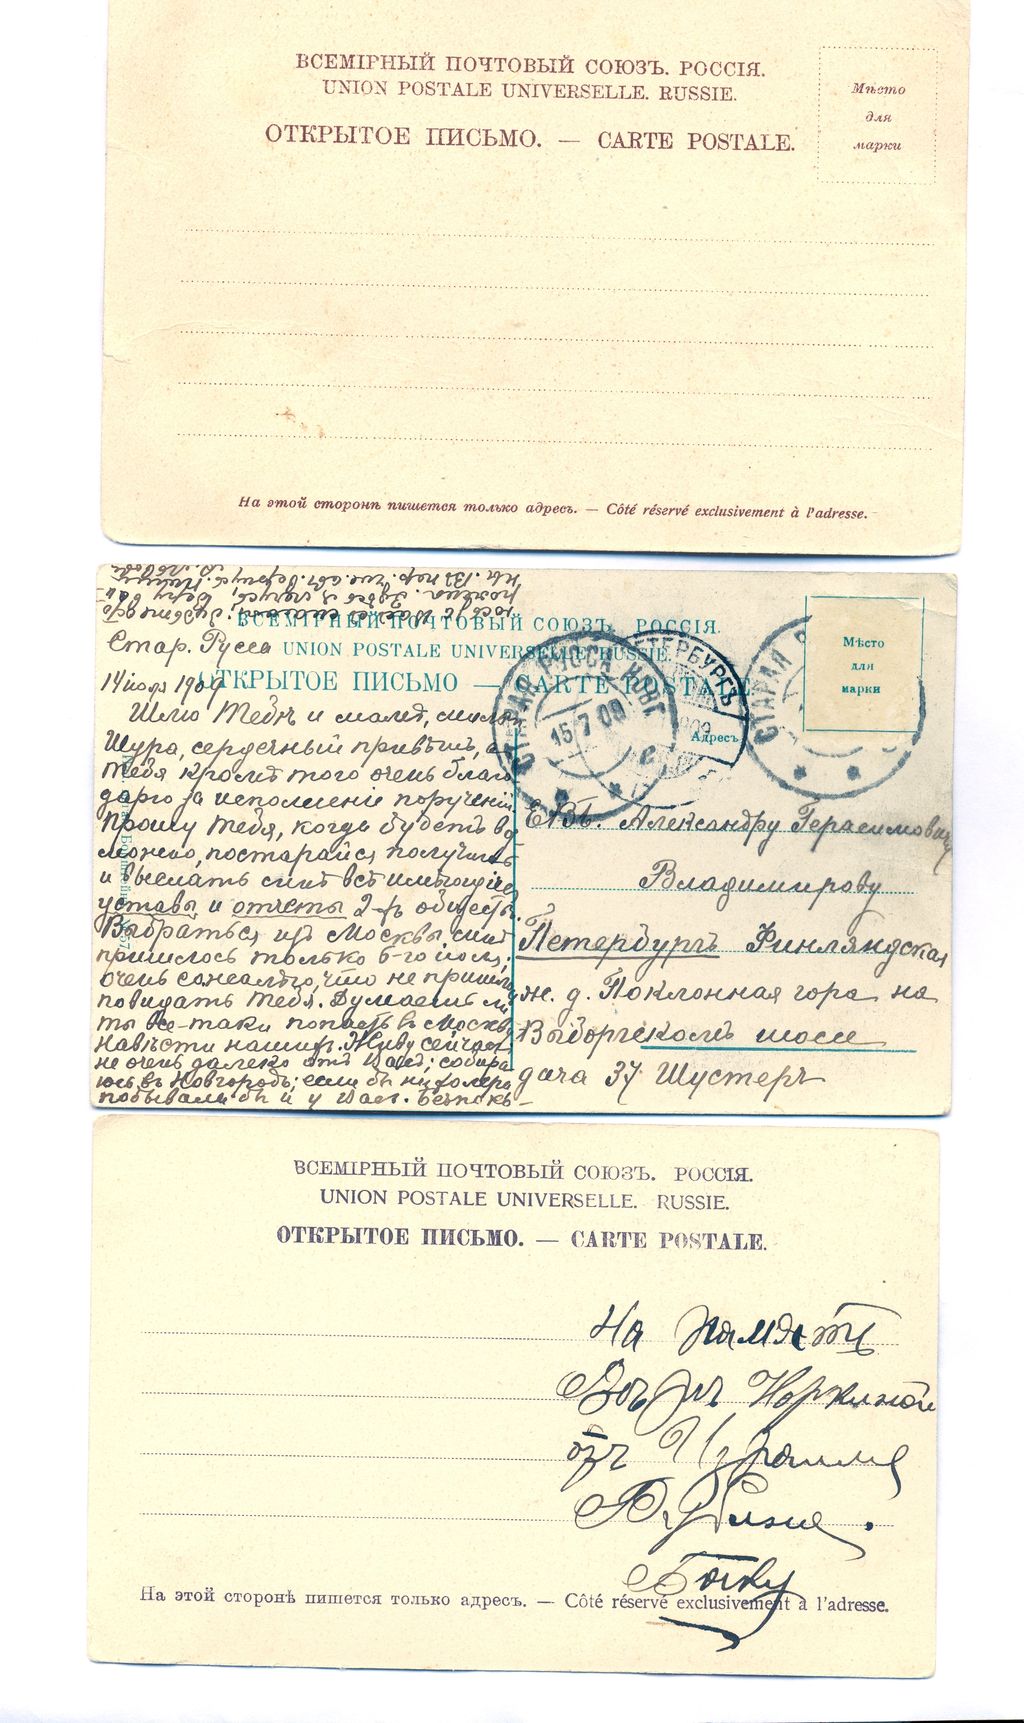 ВСЕМІРНЫЙ ПОЧТОВЫЙ СОЮЗЪ. РОССІЯ.
UNION POSTALE UNIVERSELLE. RUSSIE.
ОТКРЫТОЕ ПИСЬМО. — CARTE POSTALE.
Мѣсто
для
марки
На этой сторонѣ пишется только адресъ. — Côté réservé exclusivement à l'adresse.
ВСЕМІРНЫЙ ПОЧТОВЫЙ СОЮЗЪ. РОССІЯ.
UNION POSTALE UNIVERSELLE. RUSSIE.
ОТКРЫТОЕ ПИСЬМО — CARTE POSTALE
Мѣсто
для
марки
Адресъ
СТАРАЯ РУССА НОВГ.
15 7 09
ПЕТЕРБУРГЪ
СТАРАЯ Р
Стар. Русса
14 іюля 1909
Шлю Тебѣ и мамѣ, милый
Шура, сердечный привѣтъ, а
Тебя кромѣ того очень благо
дарю за исполненіе порученій.
Прошу Тебя, когда будетъ воз
можно, постарайся получить
и выслать мнѣ всѣ имѣющіеся
уставы и отчеты 2-хъ обществ.
Выбраться изъ Москвы мнѣ
пришлось только 6-го іюля;
очень сожалѣю, что не пришлось
повидать Тебя. Думаешь ли
ты все-таки попасть въ Москву
навѣсти нашихъ. Живу сейчасъ
не очень далеко отъ Васъ; собира
юсь въ Новгородъ; если бы не холера
побывалъ бы и у Васъ. Безпок-
ЕВЪ. Александру Герасимовичу
Владимирову
Петербургъ Финляндская
ж. д. Поклонная гора на
Выборгскомъ шоссе
дача 37 Шустеръ
ВСЕМІРНЫЙ ПОЧТОВЫЙ СОЮЗЪ. РОССІЯ.
UNION POSTALE UNIVERSELLE. RUSSIE.
ОТКРЫТОЕ ПИСЬМО. — CARTE POSTALE.
На память
отъ Израиля
Баку
На этой сторонѣ пишется только адресъ. — Côté réservé exclusivement à l'adresse.